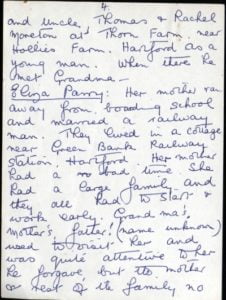 4.
and uncle, Thomas & Rachel
Moreton at Thorn Farm near
Hollies Farm. Hartford as a
young man. When there he
met Grandma -
Eliza Parry: Her mother ran
away from boarding school
and married a railway
man. They lived in a cottage
near Green Bank Railway
Station, Hartford. Her mother
had a bad time. She
had a large family and
they all had to start
work early. Grandma's
mother's father (name unknown)
used to visit her and
was quite attentive to her
He forgave but the mother
or rest of the family no